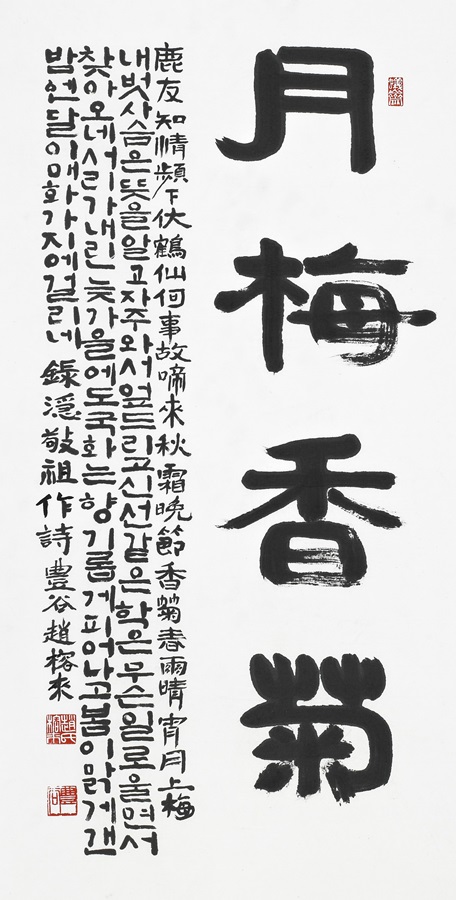 月梅香菊
鹿友知情頻下伏鶴仙何事故啼來秋霜晩節香菊春雨晴宵月上梅
내벗사슴은뜻을알고자주와서엎드리고신선같은학은무슨일로울면서
찾아오네서리가내린늦가을에도국화는향기롭게피어나고봄이맑게갠
밤엔달이매화가지에걸리네 錄隱敬祖作詩 豐谷趙榕來